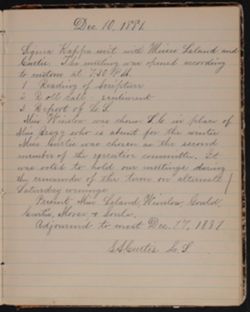 Dec. 10, 1881.
Sigma Kappa met with Misses Leland and
Curtis. The meeting was opened according
to custom at 7.30 P.M.
1. Reading of Scripture
2. Roll call, sentiment
3. Report of L.S.
Miss Winslow was chosen in place of
Miss Gragg who is absent for the winter
Miss Curtis was chosen as the second
member of the executive committee. It
was voted to hold our meetings during
the remainder of the term on alternate
Saturday evenings.
Present, Miss Leland, Winslow, Gould,
Curtis, Morse & Soule.
Adjourned to meet Dec. 17, 1881.
S.S. Curtis L.S.